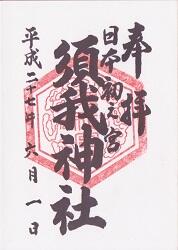 奉拝
日本初之宮
須我神社
平成二十七年六月一日